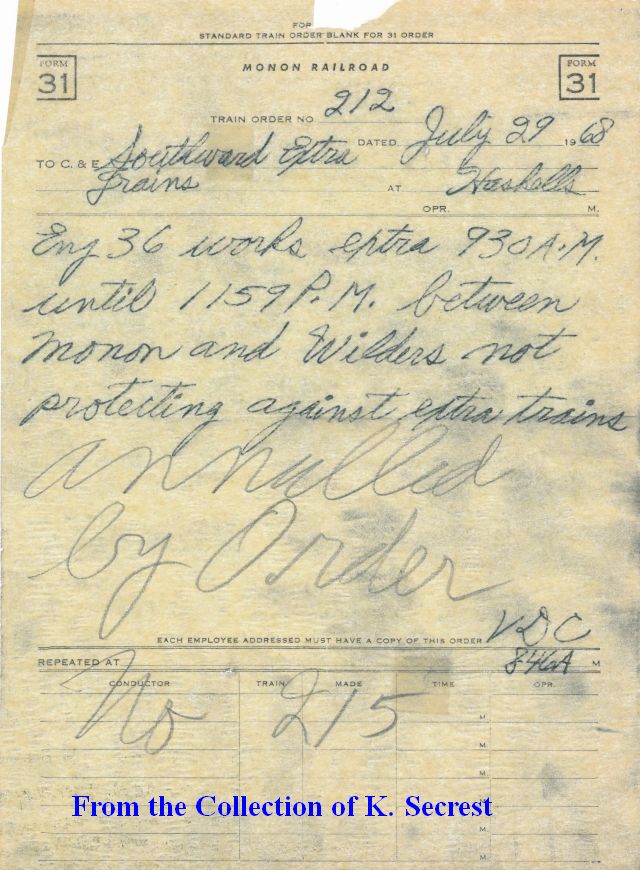 FOR
STANDARD TRAIN ORDER BLANK FOR 31 ORDER
FORM 31
MONON RAILROAD
FORM 31
TRAIN ORDER NO 212
DATED. July 29 1968
TO C. & E. Southward Extra
Trains AT Haskells
OPR. M.
Eng 36 works extra 930 A.M.
until 1159 P.M. between
Monon and Wilders not
protecting against extra trains
annulled
by Order
EACH EMPLOYEE ADDRESSED MUST HAVE A COPY OF THIS ORDER VDC
REPEATED AT 846A M
CONDUCTOR TRAIN MADE TIME OPR.
No 215
M
M
M
M
From the Collection of K. Secrest
M
M